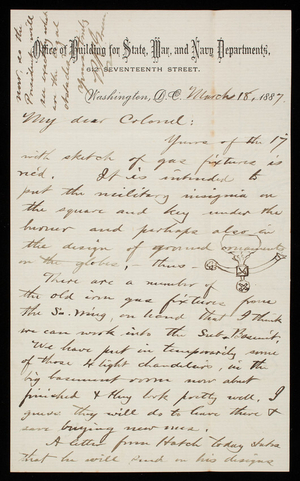 Office of Building for State, War, and Navy Departments,
612 SEVENTEENTH STREET.
Washington, D.C. March 18, 1887
My dear Colonel:
Yours of the 17
with sketch of gas fixture is
rec'd. It is intended to
put the military insignia on
the square and key under the
burner and perhaps also in
the design of ground ornaments
on the globes, - thus -
There are a number of
the old iron gas fixtures from
the So. Wing, on hand that I think
we can work into the Sub-Basem't.
We have put in temporarily some
of those 4 light chandeliers, in the
big basement room now about
finished & they look pretty well. I
guess they will do to leave there &
save buying new ones.
A letter from Hatch today
that he will send on his designs
now, as the
President will